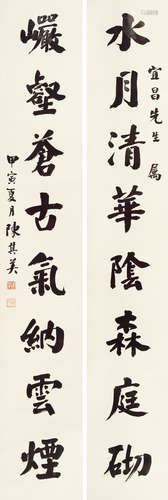 宜昌先生屬
水月清華陰森庭砌
巖壑蒼古氣納雲煙
甲寅夏月陳其美